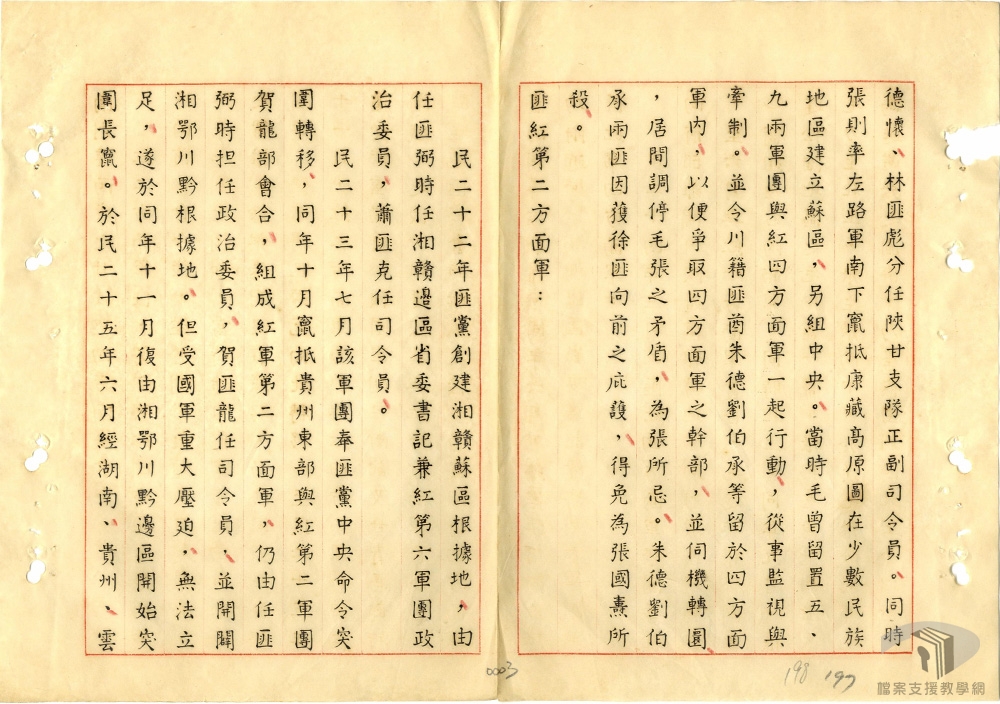 德懷、林匪彪分任陝甘支隊正副司令員。同時
張則率左路軍南下竄抵康藏高原圖在少數民族
地區建立蘇區，另組中央。當時毛曾留置五、
九兩軍團與紅四方面軍一起行動，從事監視與
牽制。並令川籍匪酋朱德劉伯承等留於四方面
軍內，以便爭取四方面軍之幹部，並伺機轉圜
，居間調停毛張之矛盾，為張所忌。朱德劉伯
承兩匪因獲徐匪向前之庇護，得免為張國燾所
殺。
匪紅第二方面軍：
民二十二年匪黨創建湘贛蘇區根據地，由
任匪弼時任湘贛邊區省委書記兼紅第六軍團政
治委員，蕭匪克任司令員。
民二十三年七月該軍團奉匪黨中央命令突
圍轉移，同年十月竄抵貴州東部與紅第二軍團
賀龍部會合，組成紅軍第二方面軍，仍由任匪
弼時担任政治委員，賀匪龍任司令員，並開闢
湘鄂川黔根據地。但受國軍重大壓廹，無法立
足，遂於同年十一月復由湘鄂川黔邊區開始突
圍長竄。於民二十五年六月經湖南、貴州、雲
0003
198
197
檔案支援教學網